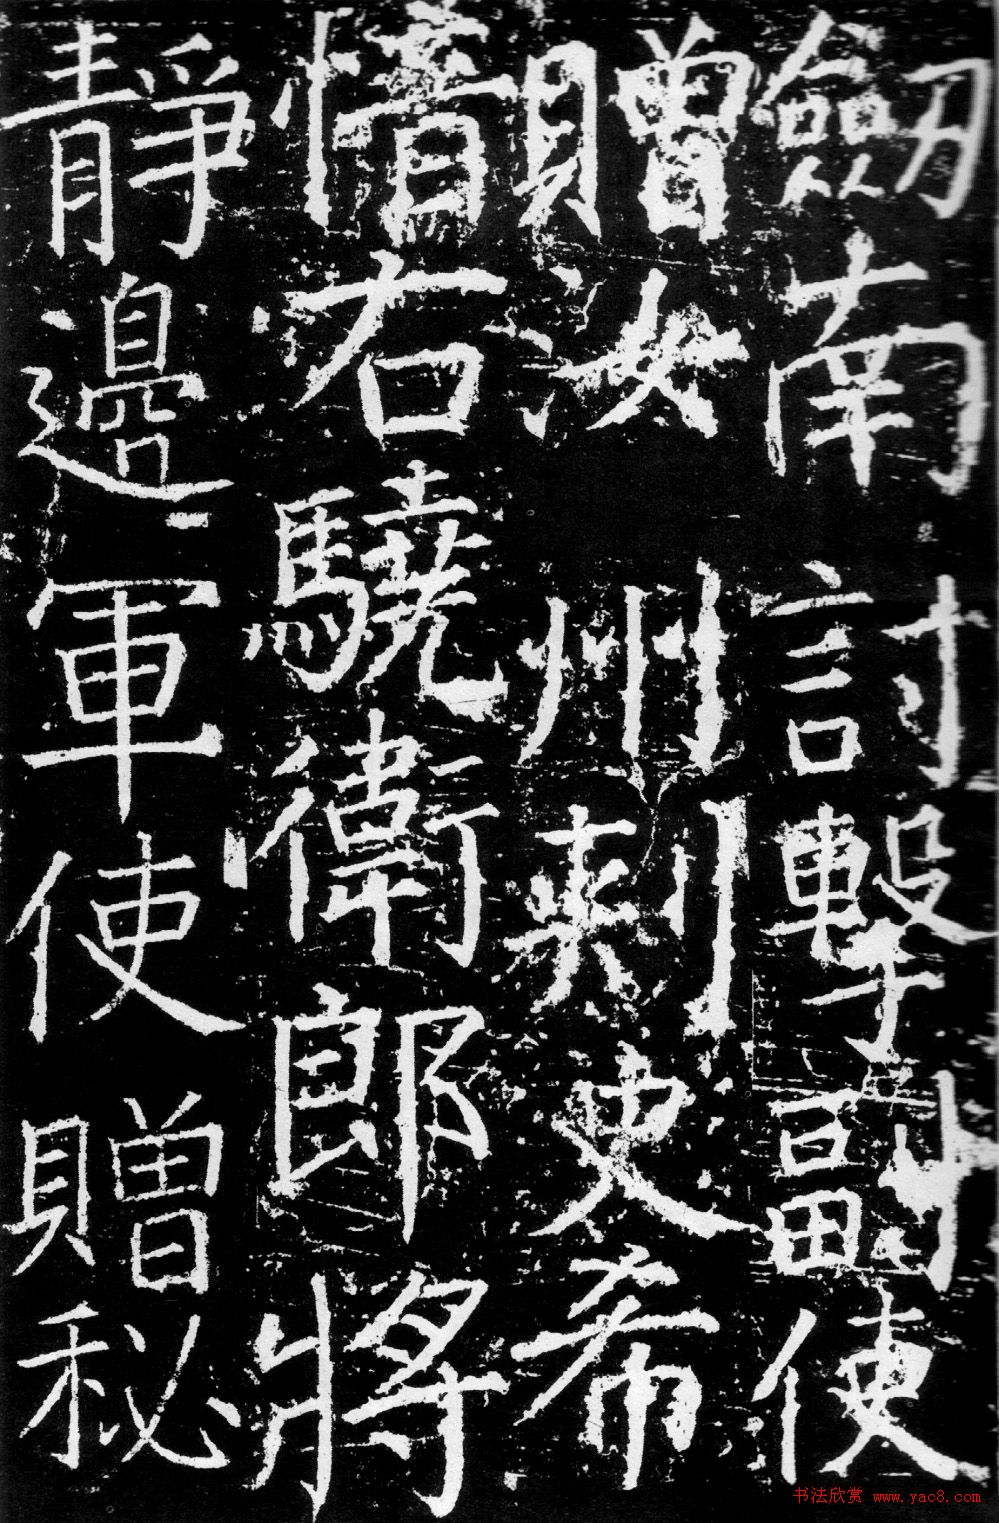 劒南討擊副使
贈汝州刺史希
愔右驍衛郎將
靜邊軍使贈秘
书法欣赏 www.yac8.com